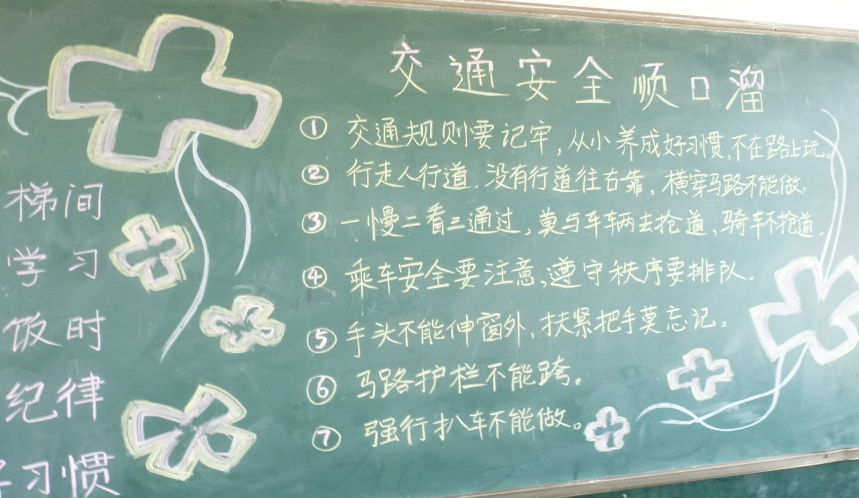 交通安全顺口溜
① 交通规则要记牢,从小养成好习惯,不在路上玩。
② 行走人行道,没有行道往右靠,横穿马路不能做。
③ 一慢二看三通过,莫与车辆去抢道,骑车不抢道.
④ 乘车安全要注意,遵守秩序要排队.
⑤ 手头不能伸窗外,扶紧把手莫忘记。
⑥ 马路护栏不能跨。
⑦ 强行扒车不能做。
梯间
学习
饭时
纪律
习惯